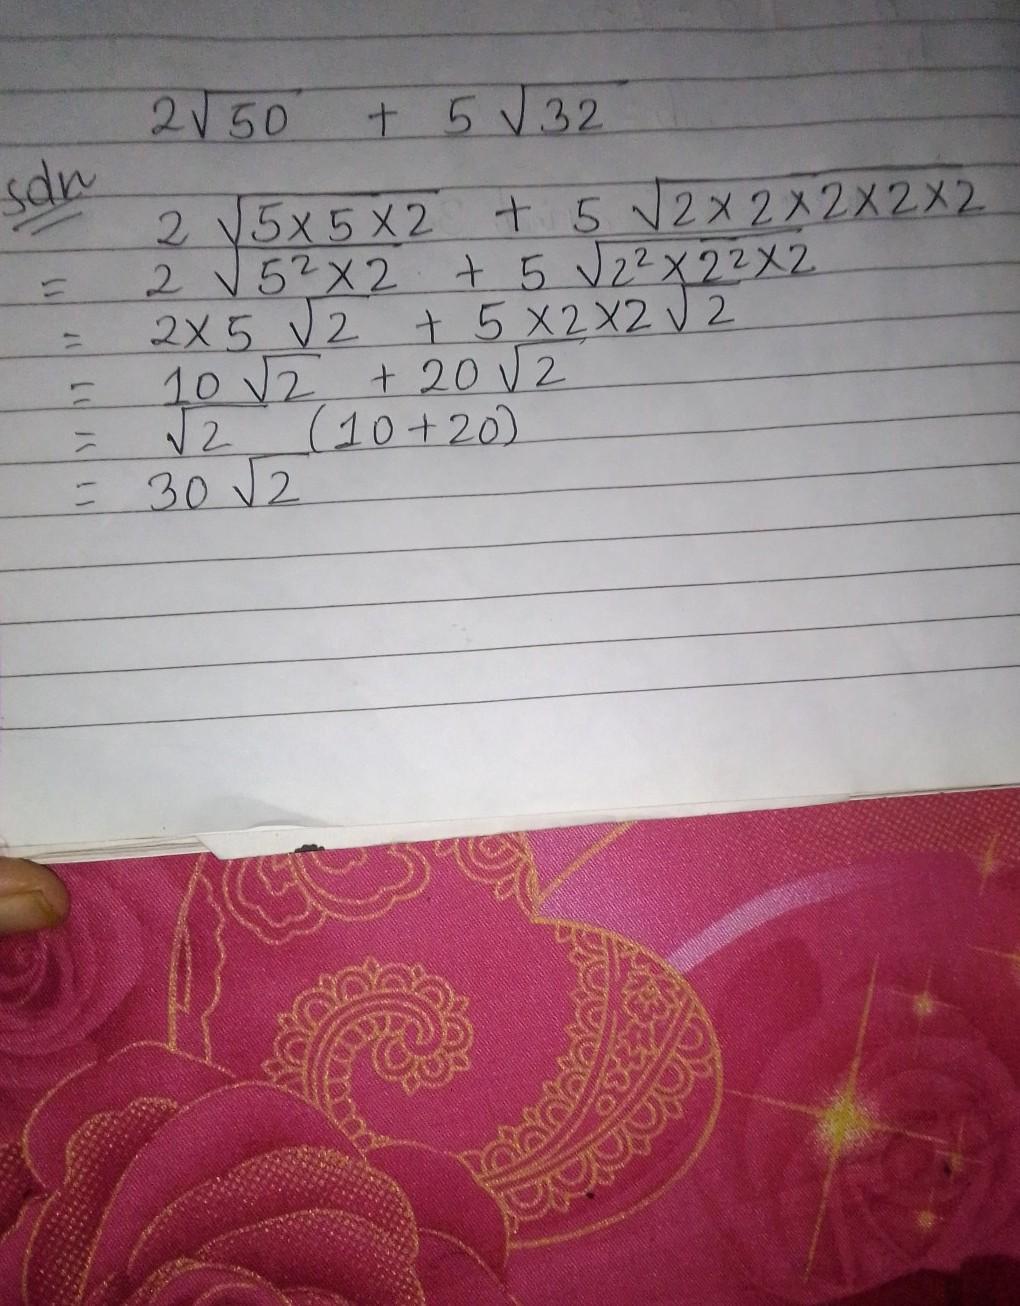 2√50 + 5√32
Soln
2 √5×5×2 + 5 √2×2×2×2×2
= 2 √5²×2 + 5 √2²×2²×2
= 2×5 √2 + 5×2×2√2
= 10√2 + 20√2
= √2 (10+20)
= 30√2